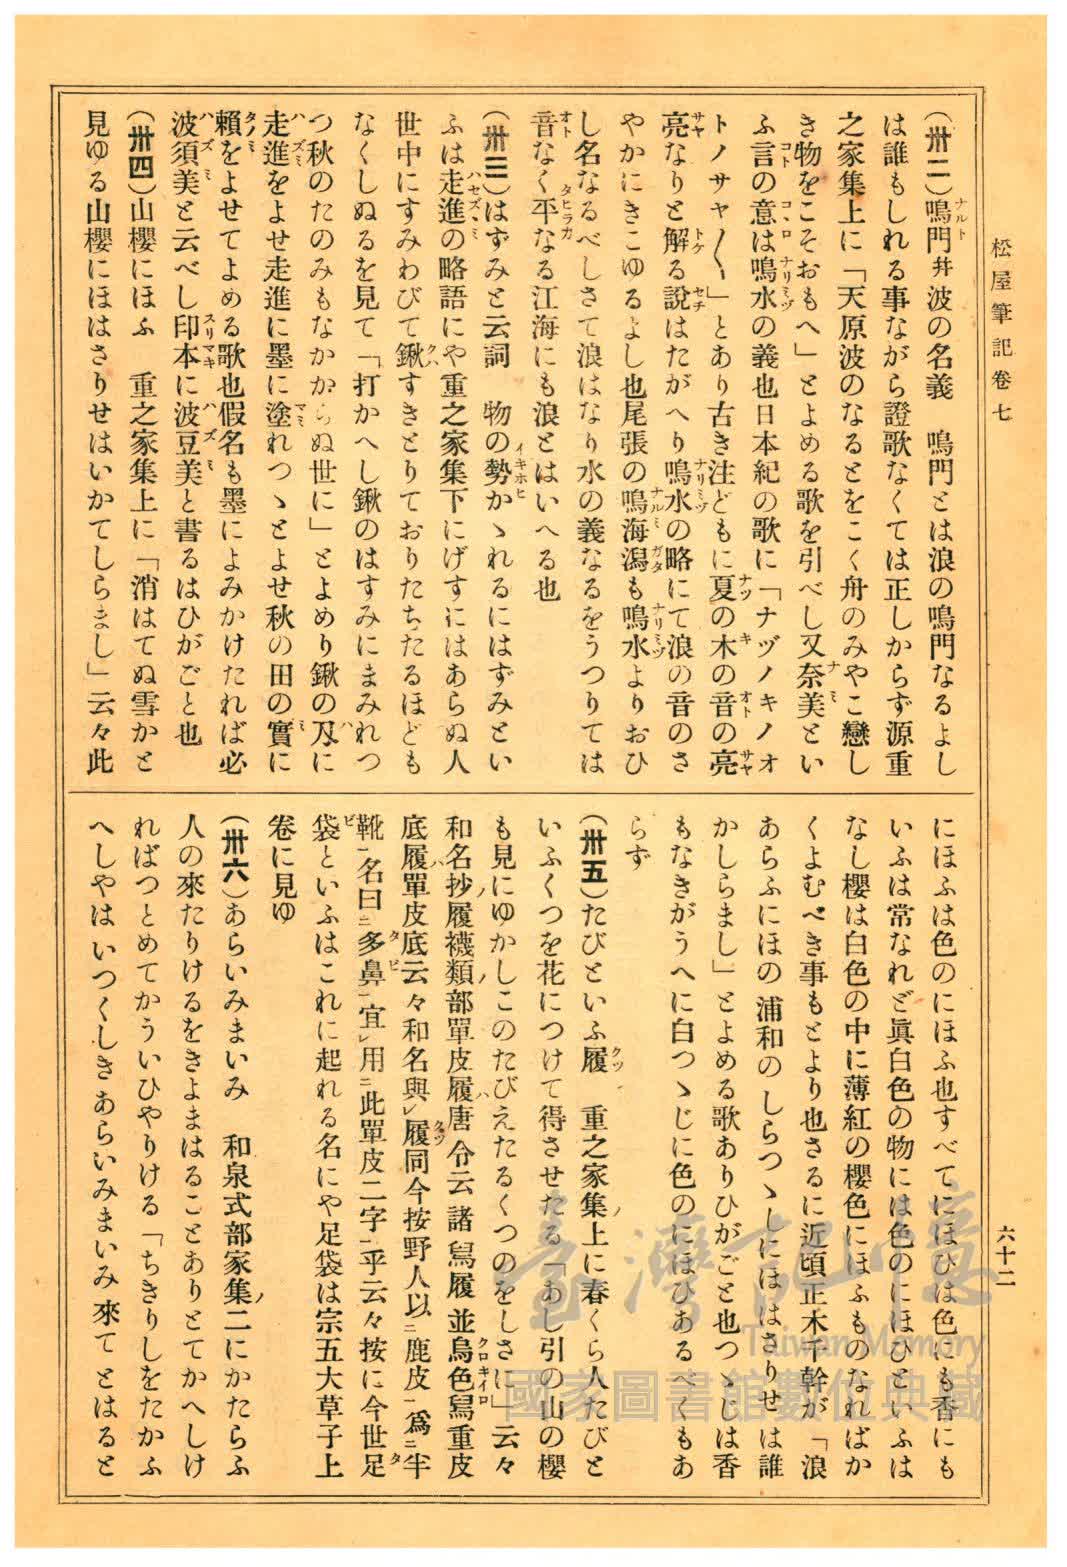 松屋筆記卷七
六十二
(卅二)鳴門幷波の名義　鳴門とは浪の鳴門なるよし
は誰もしれる事ながら證歌なくては正しからず源重
之家集上に「天原波のなるとをこく舟のみやこ戀し
き物をこそおもへ」とよめる歌を引べし又奈美とい
ふ言の意は鳴水の義也日本紀の歌に「ナヅノキノオ
トノサヤ〱」とあり古き注どもに夏の木の音の亮
亮なりと解る說はたがへり鳴水の略にて浪の音のさ
やかにきこゆるよし也尾張の鳴海潟も鳴水よりおひ
し名なるべしさて浪はなり水の義なるをうつりては
音なく平なる江海にも浪とはいへる也
(卅三)はずみと云詞　物の勢かゝれるにはずみとい
ふは走進の略語にや重之家集下にげすにはあらぬ人
世中にすみわびて鍬すきとりておりたちたるほども
なくしぬるを見て「打かへし鍬のはすみにまみれつ
つ秋のたのみもなかからぬ世に」とよめり鍬の刄に
走進をよせ走進に墨に塗れつゝとよせ秋の田の實に
賴をよせてよめる歌也假名も墨によみかけたれば必
波須美と云べし印本に波豆美と書るはひがごと也
(卅四)山櫻にほふ　重之家集上に「消はてぬ雪かと
見ゆる山櫻にほはさりせはいかてしらまし」云々此
にほふは色のにほふ也すべてにほひは色にも香にも
いふは常なれど眞白色の物には色のにほひといふは
なし櫻は白色の中に薄紅の櫻色にほふものなればか
くよむべき事もとより也さるに近頃正木千幹が「浪
あらふにほの浦和のしらつゝしにほはさりせは誰
かしらまし」とよめる歌ありひがごと也つゝじは香
もなきがうへに白つゝじに色のにほひあるべくもあ
らず
(卅五)たびといふ履　重之家集上に春くら人たびと
いふくつを花につけて得させたる「あし引の山の櫻
も見にゆかしこのたびえたるくつのをしさに」云々
和名抄履襪類部單皮履唐令云諸舃履並烏色舃重皮
底履單皮底云々和名與履同今按野人以鹿皮爲半
靴名曰多鼻宜用此單皮二字乎云々按に今世足
袋といふはこれに起れる名にや足袋は宗五大草子上
卷に見ゆ
(卅六)あらいみまいみ　和泉式部家集二にかたらふ
人の來たりけるをきよまはることありとてかへしけ
ればつとめてかういひやりける「ちきりしをたかふ
へしやはいつくしきあらいみまいみ來てとはると
臺灣記憶
Taiwan Memory
國家圖書館數位典藏